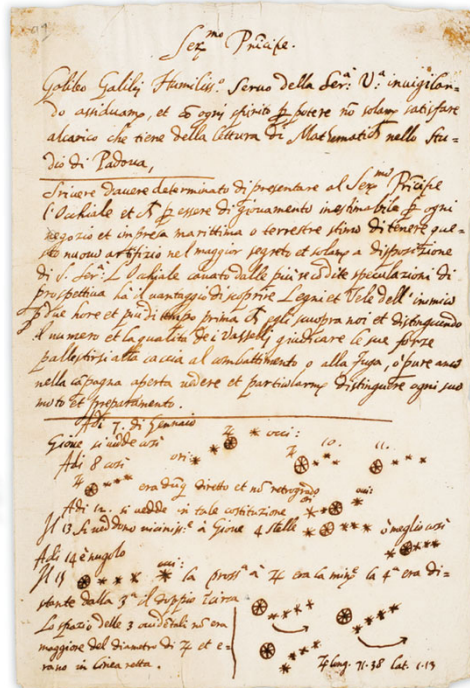 Ser.mo Prīcipe.
Galileo Galilei Humiliss.o Servo della Ser.a V.a invigilan-
do assiduamē, et cō ogni spirito p potere nō solamē satisfare
alcarico che tiene della lettura di Mathematich nello Stu-
dio di Padova,
Scrivere davere determinato di presentare al Ser.mo Prīcipe
l'Occhiale et p essere di giovamento inestimabile p ogni
negozio et impresa marittima o terrestre stimo di tenere que-
sto nuovo artifizio nel maggior segreto et solamē a disposizione
di S. Ser.a L'Occhiale cavato dalle più recōdite speculazioni di
prospettiva hà il vantaggio di scoprire Legni et Vele dell'inimico
p due hore et più di tempo prima egli scuopra noi et distinguendo
il numero et la qualità de i Vasselli giudicare le sue forze
pallestirsi alla caccia al combattimento o alla fuga, ò pure anco
nella cāpagna aperta vedere et particolarmē distinguere ogni suo
moto et preparamento.
Adi 7. di Gennaio
Gioue si vedde così occi:
Adi 8 così ori: 10. 11.
era dūq diretto et nō retrogrado
Adi 12. si vedde in tale costituzione
Il 13 si veddono vicinissē à Gioue 4 stelle ò meglio così
Adi 14 è nugolo
Il 15 la pross.a à ♃ era la min.e la 4.a era di-
stante dalla 3.a il doppio Īcirca
Lo spazio delle 3 occidētali nō era
maggiore del diametro di ♃ et e-
rano in linea retta.
♃ long. 71.38 Lat. 1.13